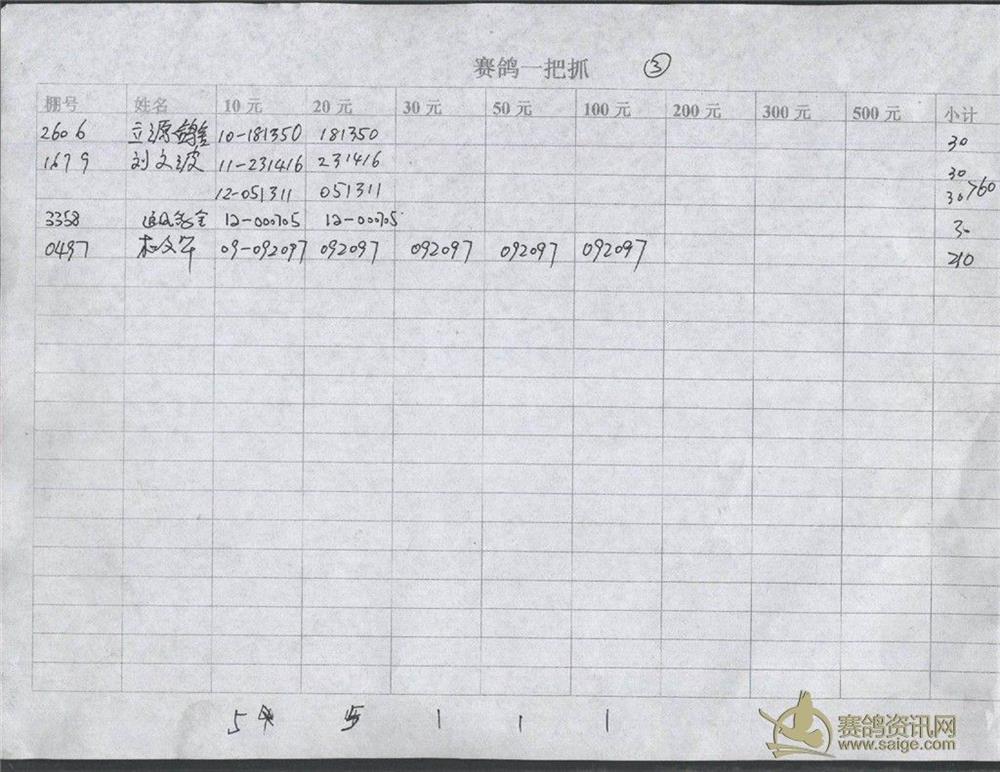 赛鸽一把抓 ③
棚号 姓名 10 元 20 元 30 元 50 元 100 元 200 元 300 元 500 元 小计
2606 立源鸽舍 10-181350 181350 30
1679 刘文波 11-231416 231416 30
12-051311 051311 30 >60
3358 12-000705 12-000705 30
0497 杜文军 09-092097 092097 092097 092097 092097 210
5 5 1 1 1
赛鸽资讯网
www.saige.com